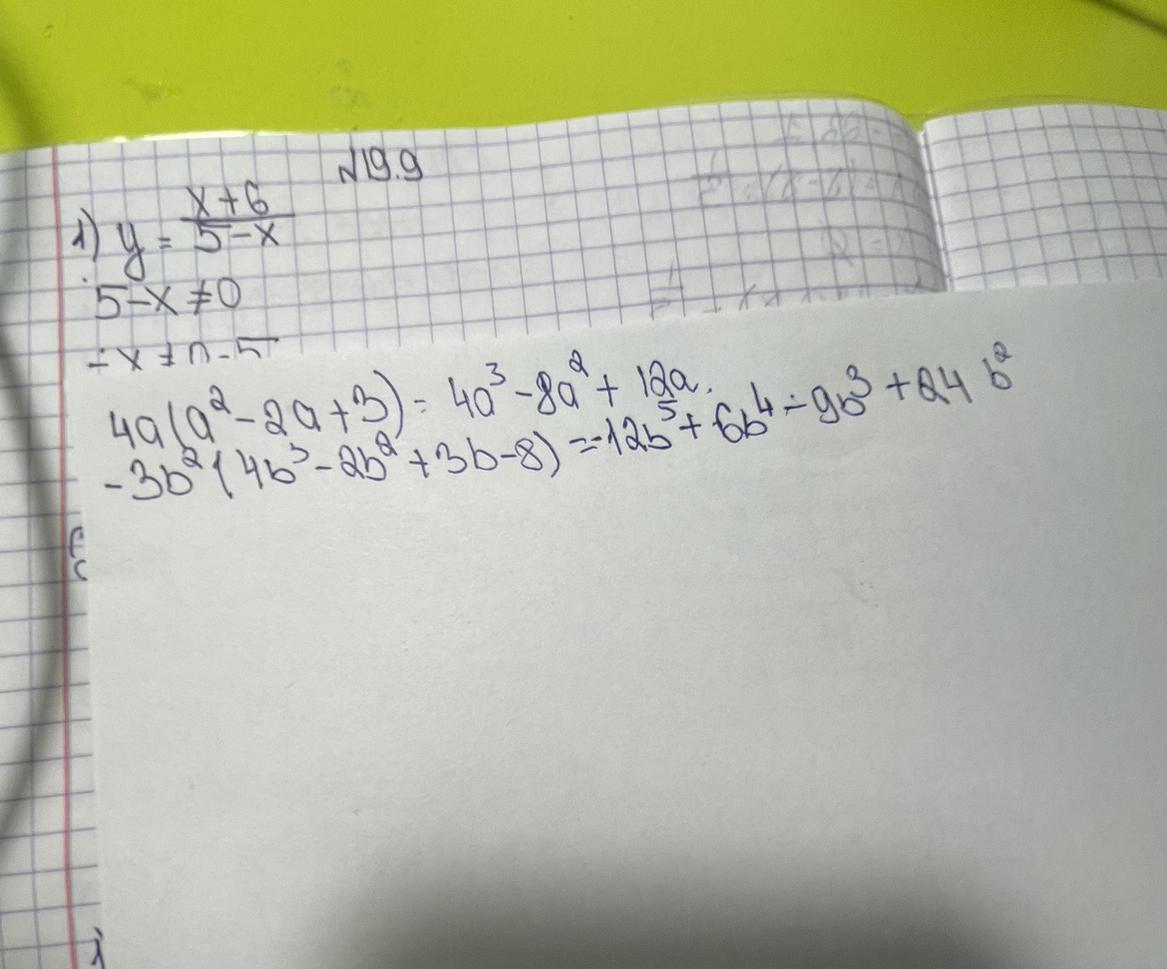 №19.9
1) y = \frac{x+6}{5-x}
5-x≠0
-x≠0-5
4a(a²-2a+3) = 4a³-8a²+12a.
-3b²(4b³-2b²+3b-8) = -12b⁵+6b⁴-9b³+24b²